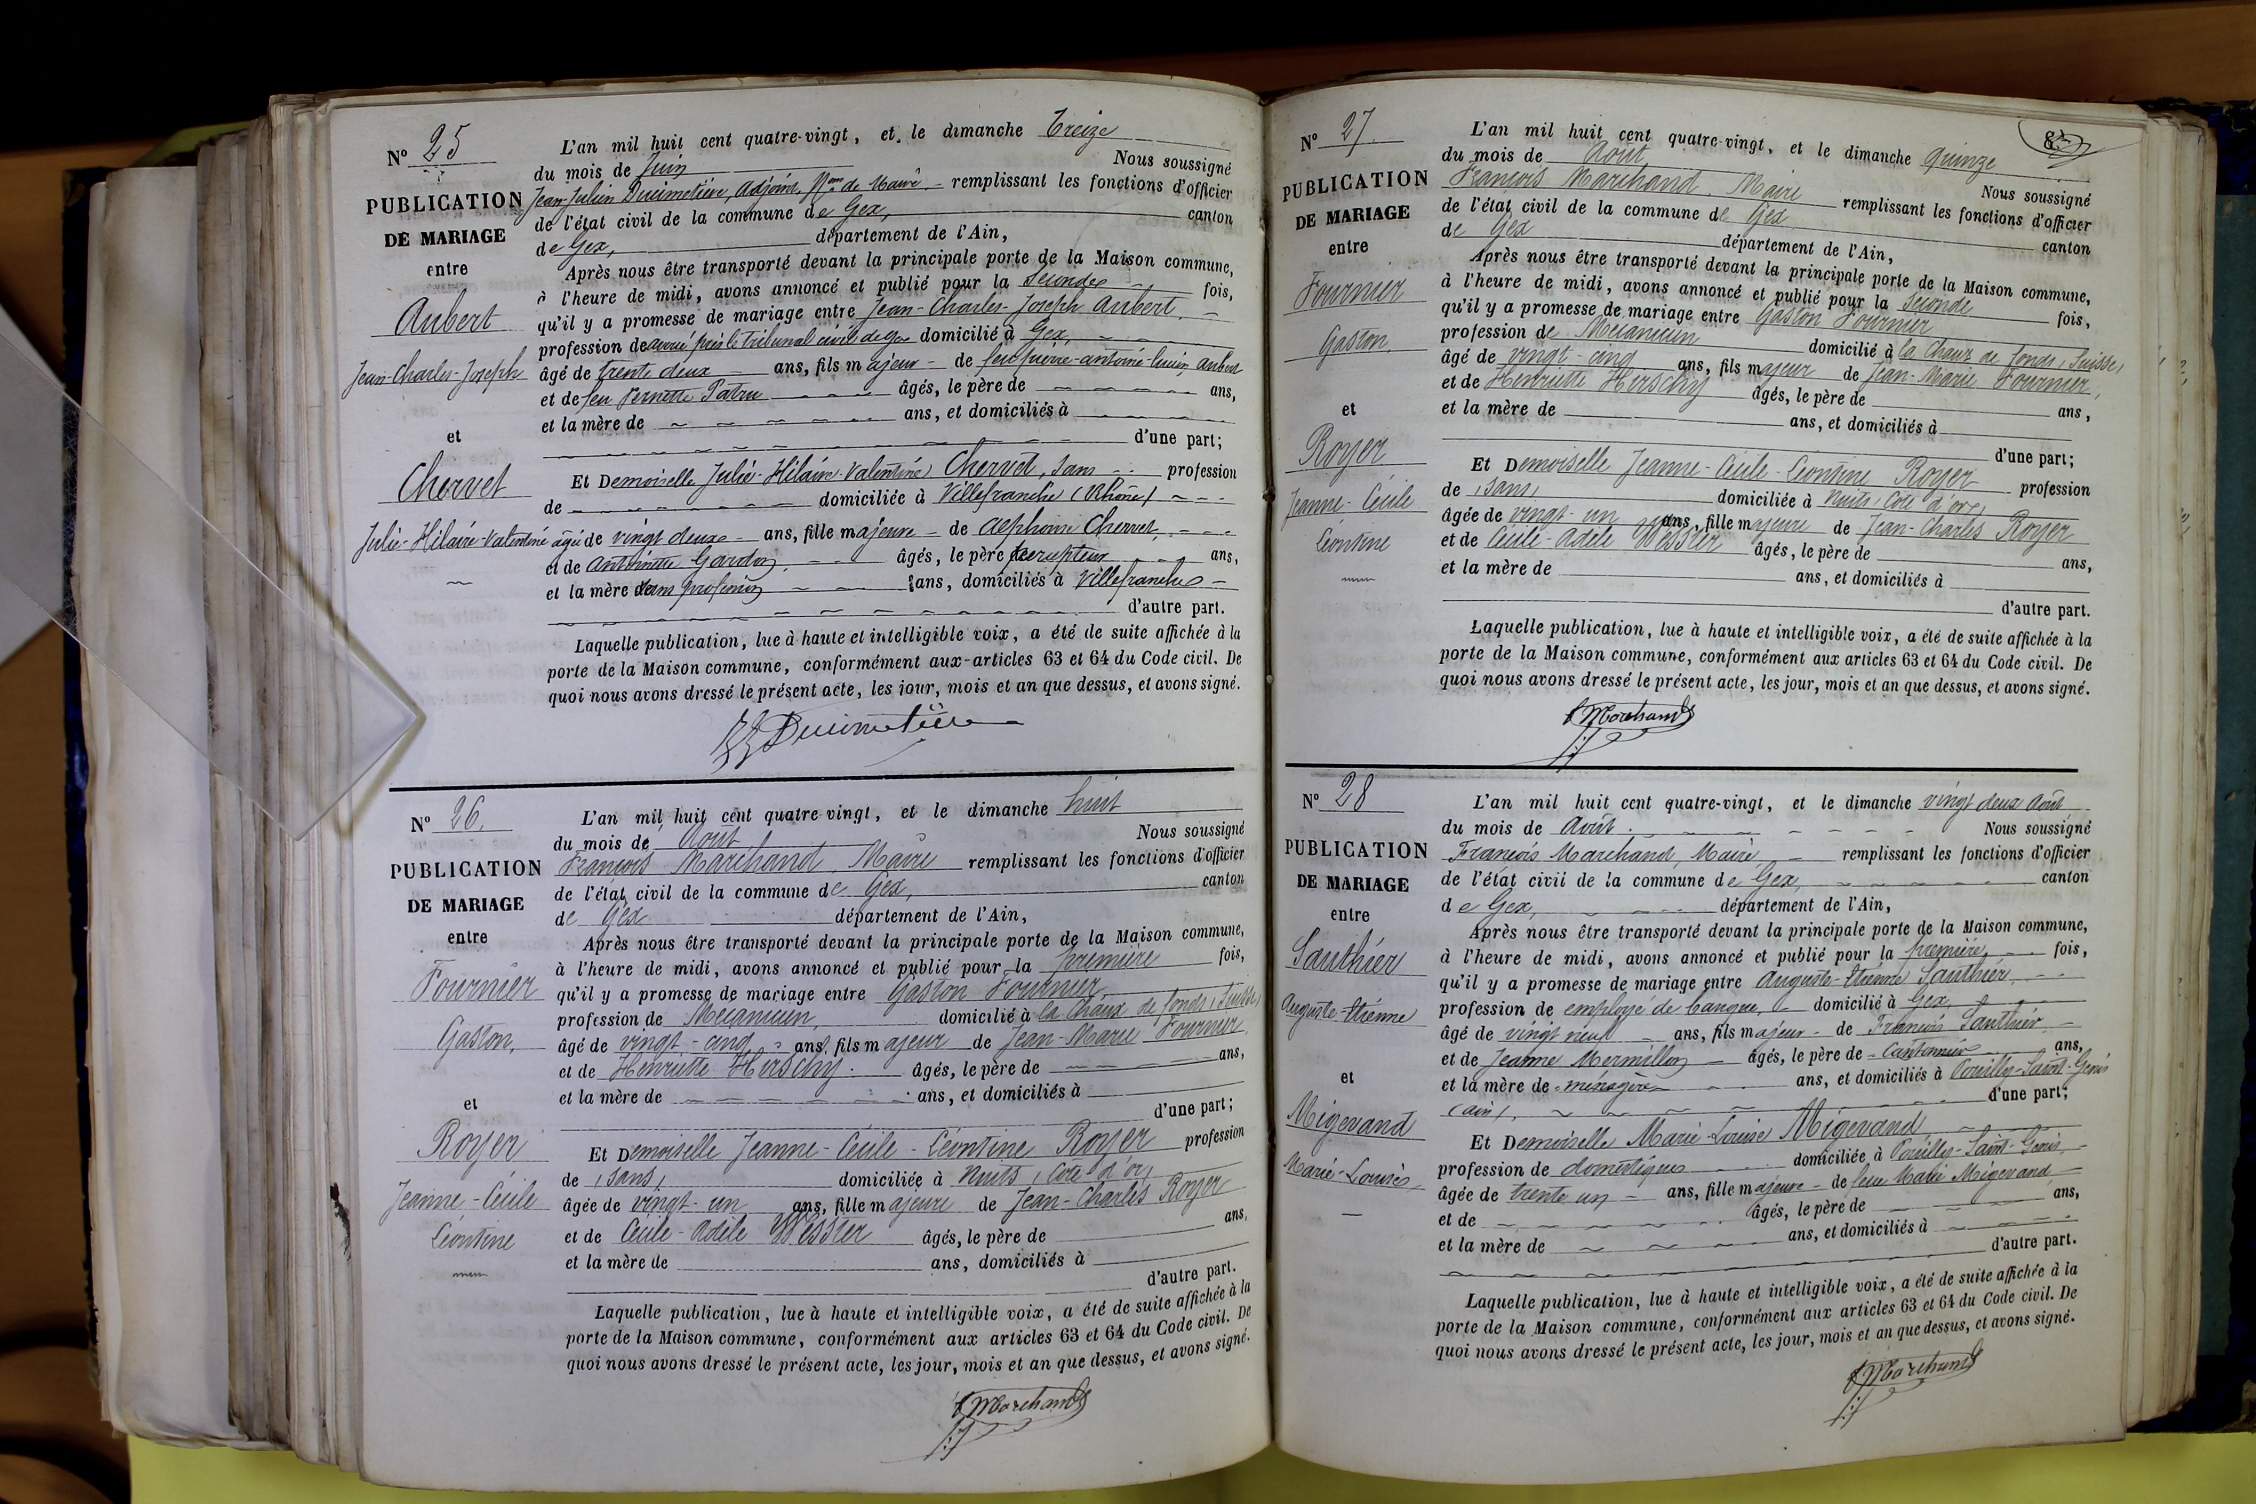 N° 25
PUBLICATION
DE MARIAGE
entre
Aubert
Jean-Charles-Joseph
et
Chervet
Julie-Hilaire-Valentine
L'an mil huit cent quatre-vingt, et le dimanche Treize
du mois de Juin Nous soussigné
Jean-Julien Ducimetière, Adjoint, de Maire remplissant les fonctions d'officier
de l'état civil de la commune de Gex, canton
de Gex, département de l'Ain,
Après nous être transporté devant la principale porte de la Maison commune,
à l'heure de midi, avons annoncé et publié pour la seconde fois,
qu'il y a promesse de mariage entre Jean-Charles-Joseph Aubert
profession de avoué près le tribunal civil de Gex domicilié à Gex,
âgé de trente deux ans, fils majeur de feu pierre-antoine-lucien Aubert
et de feu Pernette Patru âgés, le père de ans,
et la mère de ans, et domiciliés à
d'une part;
Et Demoiselle Julie-Hilaire-Valentine Chervet, sans profession
de domiciliée à Villefranche (Rhône)
âgée de vingt deux ans, fille majeure de Alphonse Chervet,
et de Antoinette Gardon, âgés, le père percepteur ans,
et la mère sans profession ans, domiciliés à Villefranche
d'autre part.
Laquelle publication, lue à haute et intelligible voix, a été de suite affichée à la
porte de la Maison commune, conformément aux articles 63 et 64 du Code civil. De
quoi nous avons dressé le présent acte, les jour, mois et an que dessus, et avons signé.
JJ Ducimetière
N° 26.
PUBLICATION
DE MARIAGE
entre
Fournier
Gaston,
et
Royer
Jeanne-Cécile
Léontine
L'an mil huit cent quatre-vingt, et le dimanche huit
du mois de Août Nous soussigné
François Marchand, Maire remplissant les fonctions d'officier
de l'état civil de la commune de Gex, canton
de Gex département de l'Ain,
Après nous être transporté devant la principale porte de la Maison commune,
à l'heure de midi, avons annoncé et publié pour la première fois,
qu'il y a promesse de mariage entre Gaston Fournier
profession de Mécanicien, domicilié à la Chaux de fonds, Suisse,
âgé de vingt-cinq ans, fils majeur de Jean-Marie Fournier,
et de Henriette Herschy. âgés, le père de ans,
et la mère de ans, et domiciliés à
d'une part;
Et Demoiselle Jeanne-Cécile-Léontine Royer profession
de (sans) domiciliée à Nuits (Cote d'or)
âgée de vingt-un ans, fille majeure de Jean-Charles Royer
et de Cécile-Adèle Wessler âgés, le père de ans,
et la mère de ans, domiciliés à
d'autre part.
Laquelle publication, lue à haute et intelligible voix, a été de suite affichée à la
porte de la Maison commune, conformément aux articles 63 et 64 du Code civil. De
quoi nous avons dressé le présent acte, les jour, mois et an que dessus, et avons signé.
f Marchand
N° 27.
PUBLICATION
DE MARIAGE
entre
Fournier
Gaston,
et
Royer
Jeanne-Cécile
Léontine
L'an mil huit cent quatre-vingt, et le dimanche quinze
du mois de Août Nous soussigné
François Marchand, Maire remplissant les fonctions d'officier
de l'état civil de la commune de Gex canton
de Gex département de l'Ain,
Après nous être transporté devant la principale porte de la Maison commune,
à l'heure de midi, avons annoncé et publié pour la seconde fois,
qu'il y a promesse de mariage entre Gaston Fournier
profession de Mécanicien domicilié à la Chaux de fonds, Suisse,
âgé de vingt-cinq ans, fils majeur de Jean-Marie Fournier,
et de Henriette Herschy âgés, le père de ans,
et la mère de ans, et domiciliés à
d'une part;
Et Demoiselle Jeanne-Cécile-Léontine Royer profession
de (sans) domiciliée à Nuits (Cote d'or)
âgée de vingt-un ans, fille majeure de Jean-Charles Royer
et de Cécile-Adèle Wessler âgés, le père de ans,
et la mère de ans, et domiciliés à
d'autre part.
Laquelle publication, lue à haute et intelligible voix, a été de suite affichée à la
porte de la Maison commune, conformément aux articles 63 et 64 du Code civil. De
quoi nous avons dressé le présent acte, les jour, mois et an que dessus, et avons signé.
f Marchand
N° 28
PUBLICATION
DE MARIAGE
entre
Sauthier
Auguste-Etienne
et
Migevand
Marie-Louise
L'an mil huit cent quatre-vingt, et le dimanche vingt deux Août
du mois de Août. Nous soussigné
François Marchand, Maire remplissant les fonctions d'officier
de l'état civil de la commune de Gex, canton
de Gex, département de l'Ain,
Après nous être transporté devant la principale porte de la Maison commune,
à l'heure de midi, avons annoncé et publié pour la première, fois,
qu'il y a promesse de mariage entre Auguste-Etienne Sauthier
profession de employé de banque, domicilié à Gex,
âgé de vingt neuf ans, fils majeur de François Sauthier
et de Jeanne Mermillon âgés, le père de Cantonnier ans,
et la mère de ménagère ans, et domiciliés à Pouilly-Saint-Genis
(ain), d'une part;
Et Demoiselle Marie-Louise Migevand
profession de domestique domiciliée à Pouilly-Saint-Genis,
âgée de trente un ans, fille majeure de feue Marie Migevand
et de âgés, le père de ans,
et la mère de ans, et domiciliés à
d'autre part.
Laquelle publication, lue à haute et intelligible voix, a été de suite affichée à la
porte de la Maison commune, conformément aux articles 63 et 64 du Code civil. De
quoi nous avons dressé le présent acte, les jour, mois et an que dessus, et avons signé.
f Marchand